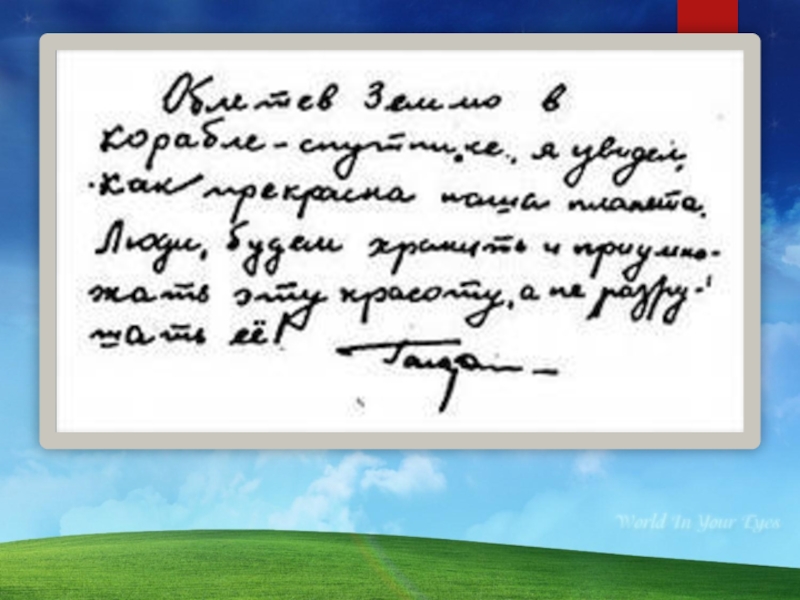 Облетев Землю в
корабле-спутнике, я увидел,
как прекрасна наша планета.
Люди, будем хранить и приумно-
жать эту красоту, а не разру-
шать её!
Гагарин
World In Your Eyes